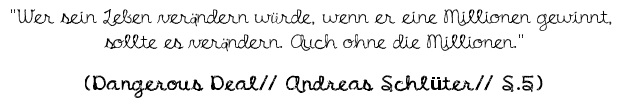 "Wer sein Leben verändern würde, wenn er eine Millionen gewinnt,
sollte es verändern. Auch ohne die Millionen."
(Dangerous Deal// Andreas Schlüter// S.5)